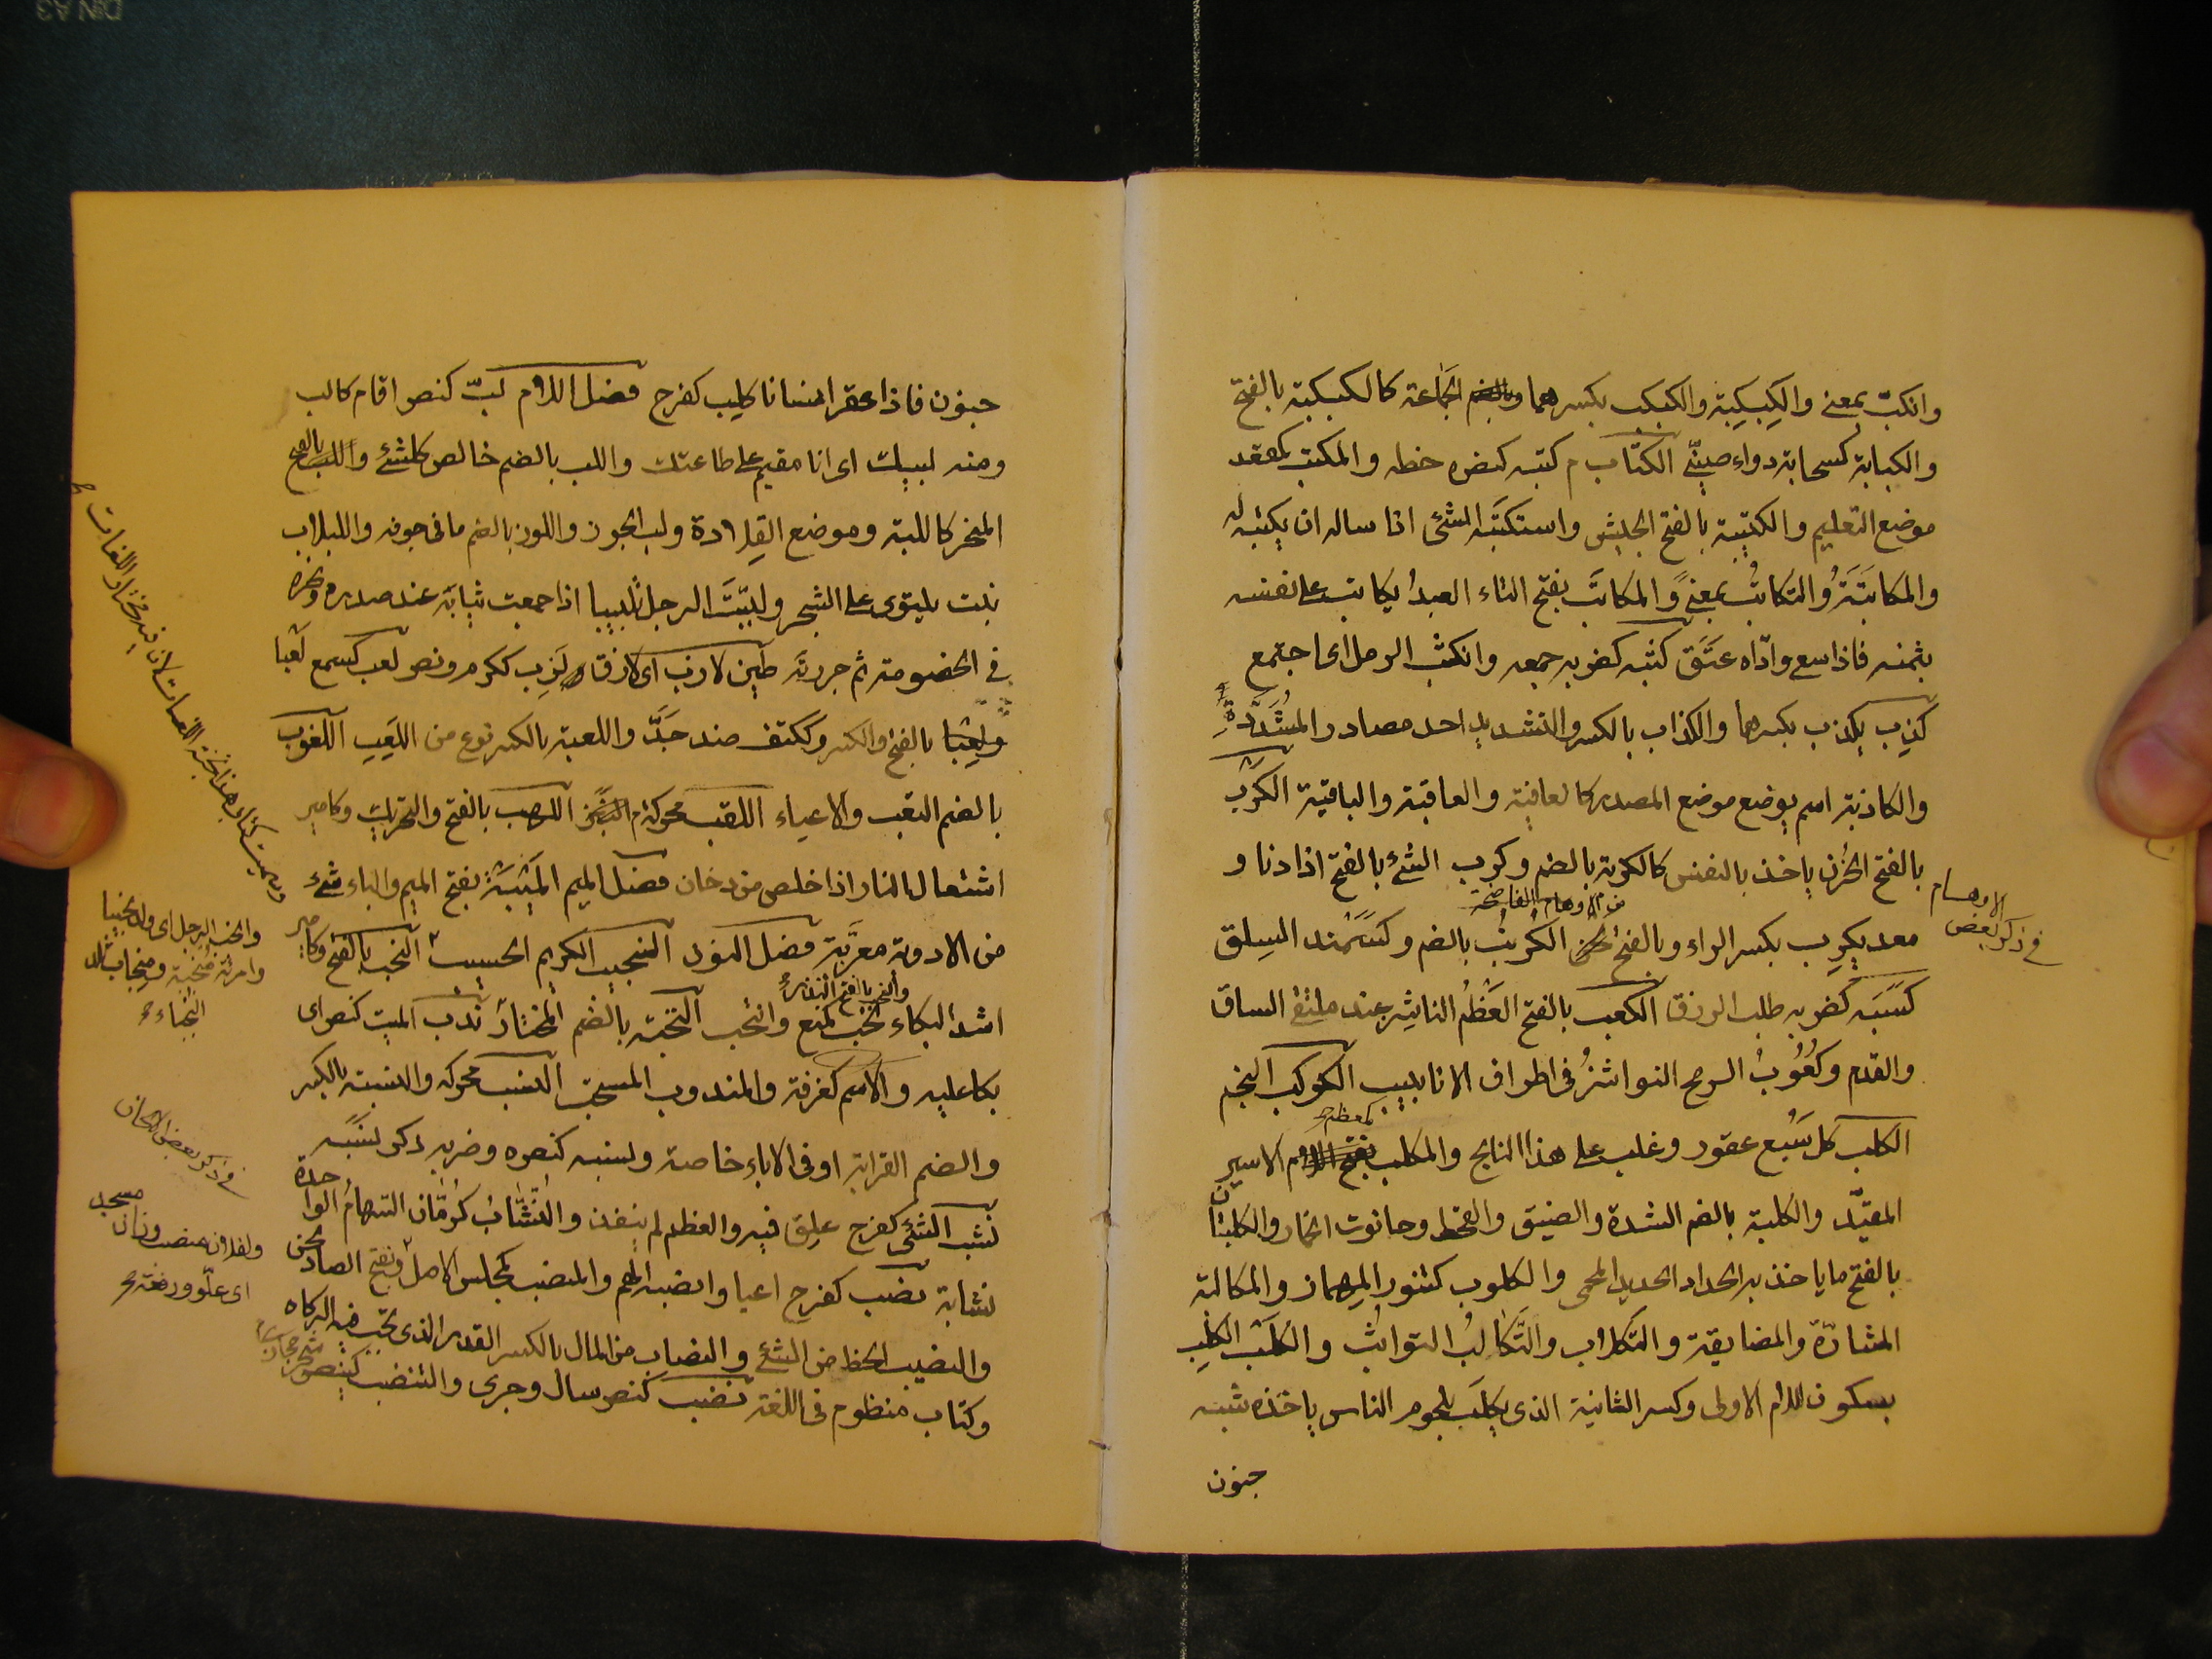 وانكبّ بمعنى والكِبكِبة والكبكب بكسرهما وبالضم الجَماعة كالكبكبة بالفتح
والكبابة كسحابة دواء صينىّ الكتاب م كتبه كنصره خطه والمكتب كمقعد
موضع التعليم والكتيبة بالفتح الجيش واستكتَبَه الشئ اذا ساله ان يكتبه له
والمكاتَبَةُ والتكاتُب بمعنىً والمكاتَب بفتح التاء العبدُ يكاتب على نفسه
بثمنه فاذا سعى وادّاه عتَقَ كثبه كضربه جمعه وانكثب الرمل اى اجتمع
كَذِب يكذب بكسرهما والكذاب بالكسر والتشديد احد مصادر المُشَدَّدةِ
والكاذبة اسم يوضع موضع المصدر كالعافية والعاقبة والباقية الكَرْب
بالفتح الحُزن ياخذ بالنفس كالكربة بالضم وكرب الشئ بالفتح اذا دنا و
من الاوهام الفاضحة
معد يكرِب بكسر الراء وبالفتح لحن الكُرنُب بالضم وكسَمَند السِلق
كَسَبَه كضربه طلب الرزق الكعب بالفتح العَظْمُ الناشِز عند ملتقى الساق
والقدم وكُعُوبُ الرمح النواشزُ فى اطراف الانابيب الكوكب النجم
كمعظم
الكلب كل سَبُع عقور وغلب على هذا النابح والمكلب بفتح اللام الاسير
المقيّد والكلبة بالضم الشدة والضيق والقحط وحانوت الخمار والكلبتان
بالفتح ما ياخذ به الحداد الحديد المحمى والكلوب كتنور المِهماز والمكالبة
المشارّة والمضايقة والتكالب والتَّكالبُ التواثُب والكَلْب الكَلِب
بسكون اللام الاولى وكسر الثانية الذى يكلَب بلحوم الناس ياخذه شبه
جنون
فى ذكر بعض
الاوهام
جنون فاذا عقر انسانا كلِب كفرح فصل اللام لبّ كنصر اقام كالب
ومنه لبيك اى انا مقيم على طاعتك واللب بالضم خالص كل شئ واللبب بالفتح
المنحر كاللبة وموضع القِلادة ولب الجوز واللوز بالضم ما فى جوفه واللبلاب
نبت يلتوى على الشجر ولبّبتَ الرجل تلبيبا اذا جمعت ثيابه عند صدره ونحره
فى الخصومة ثم جررته طين لازب اى لازق لَزِب ككرم ونصر لعب كسمع لَعْبا
ولِعْبا بالفتح والكسر وككتف ضد جَدَّ واللعبة بالكسر نوع من اللَعِب اللغوب
بالضم التعب والاعياء اللقب محركة م النَبَز اللهب بالفتح والتحريك وكامير
اشتعال النار اذا خلص من دخان فصل الميم المَيْبَة بفتح الميم والباء شئ
من الادوية معرَّبة فصل النون النجيب الكريم الحسيب النحب بالفتح وكامير
والنحب بالفتح النذر
اشد البكاء نحب كمنع وانتحب النخبة بالضم المختار ندب الميت كنصر اى
بكا عليه والاسم كغرفة والمندوب المستحب النسب محركه والنسبة بالكسر
والضم القرابة او فى الاباء خاصة ونسبه كنصره وضربه ذكر نسَبَه
نشب الشئ كفرح علِق فيه والعظم لم ينفذ والنُشّابُ كرُمّان السهامُ الواحدة
نشابة نصب كفرح اعيا وانصبه الهم والمنصب كمجلس الاصل وبفتح الصاد لحن
والنصيب الحظ من الشئ والنصاب من المال بالكسر القدر الذى تجب فيه الزكاه
وكتاب منظوم فى اللغة نضب كنصر سال وجرى والتنضب كتنصر شجر حجازى
وانجب الرجل اى ولد نجيبا
وامرئة منجبة ومنجاب تلد
النجباء
فى ذكر بعض الالحان
ولفلان منصب وزان مسجد
اى علوّ ورفعة